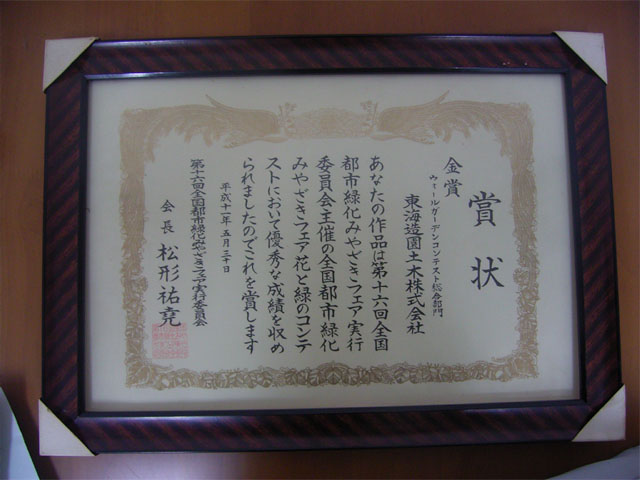 賞状
金賞
ウォールガーデンコンテスト総合部門
東海造園土木株式会社
あなたの作品は第十六回全国
都市緑化みやざきフェア実行
委員会主催の全国都市緑化
みやざきフェア花と緑のコンテ
ストにおいて優秀な成績を収め
られましたのでこれを賞します
平成十一年五月三十日
第十六回全国都市緑化みやざきフェア実行委員会
会長 松形祐堯